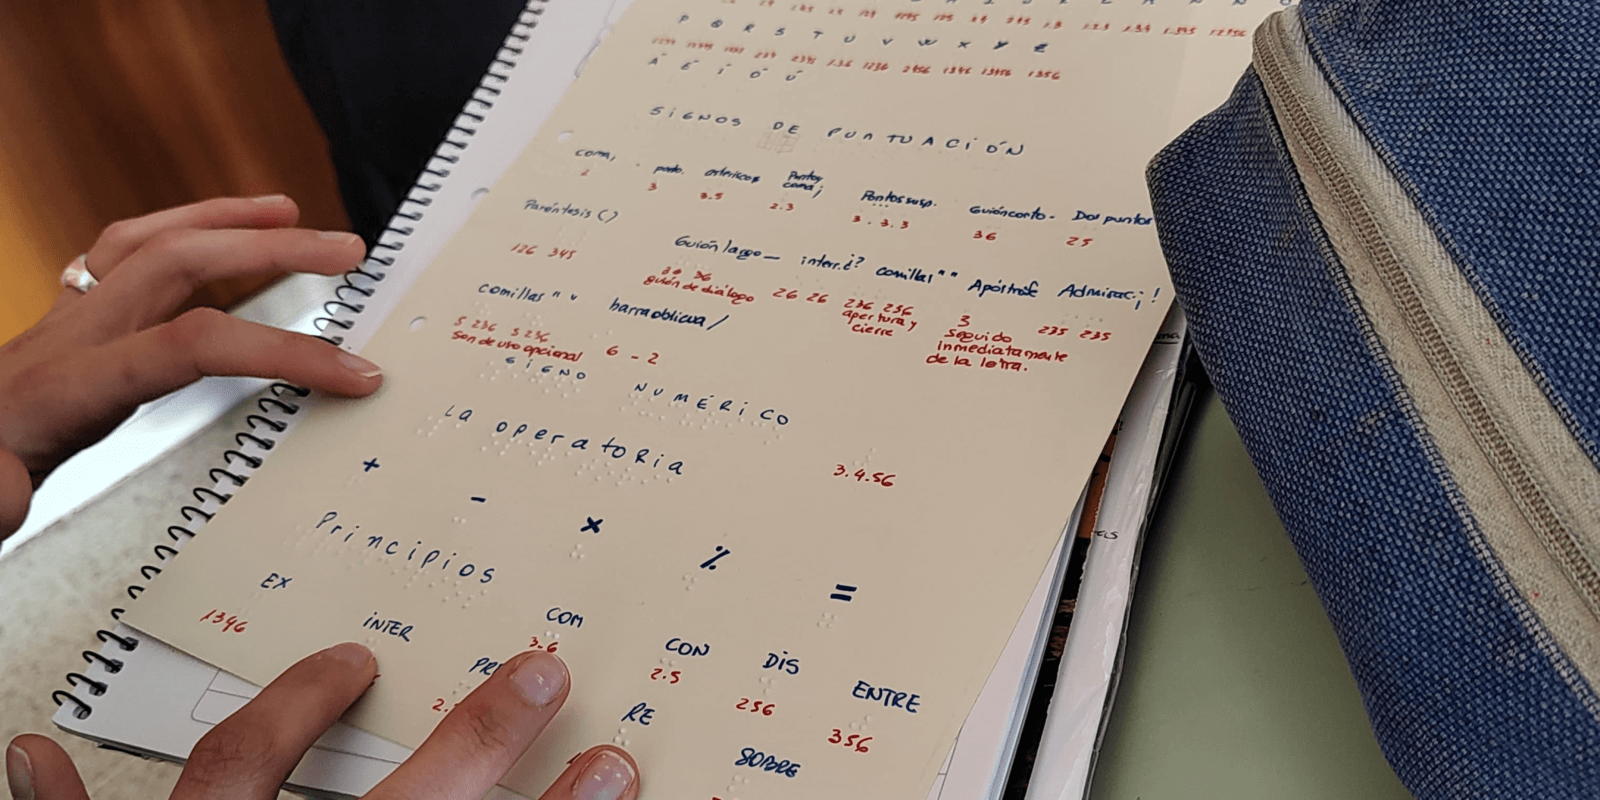 P Q R S T U V W X Y Z
1234 12345 1235 234 2345 136 1236 2456 1346 13456 1356
Á É Í Ó Ú
SiGNOS DE PUNTUACiÓN
coma, . punto. asterisco* Puntos coma; Puntos susp. Guión corto - Dos puntos
2 3 3.5 2.3 3.3.3 36 25
Paréntesis ()
126 345
Guión largo — interr.¿? comillas "" Apóstrofe Admirac¡!
36 36
guión de diálogo
26 26
236 256
apertura y
cierre
3
seguido
inmediatamente
de la letra.
235 235
comillas "" barra oblicua /
5 236 5 236
son de uso opcional
6 - 2
SiGNO NUMÉRiCO
La operatoria
3.4.56
+ - × % =
Principios
EX iNTER COM CON DiS ENTRE
1346 3.6 2.5 256 356
RE SOBRE